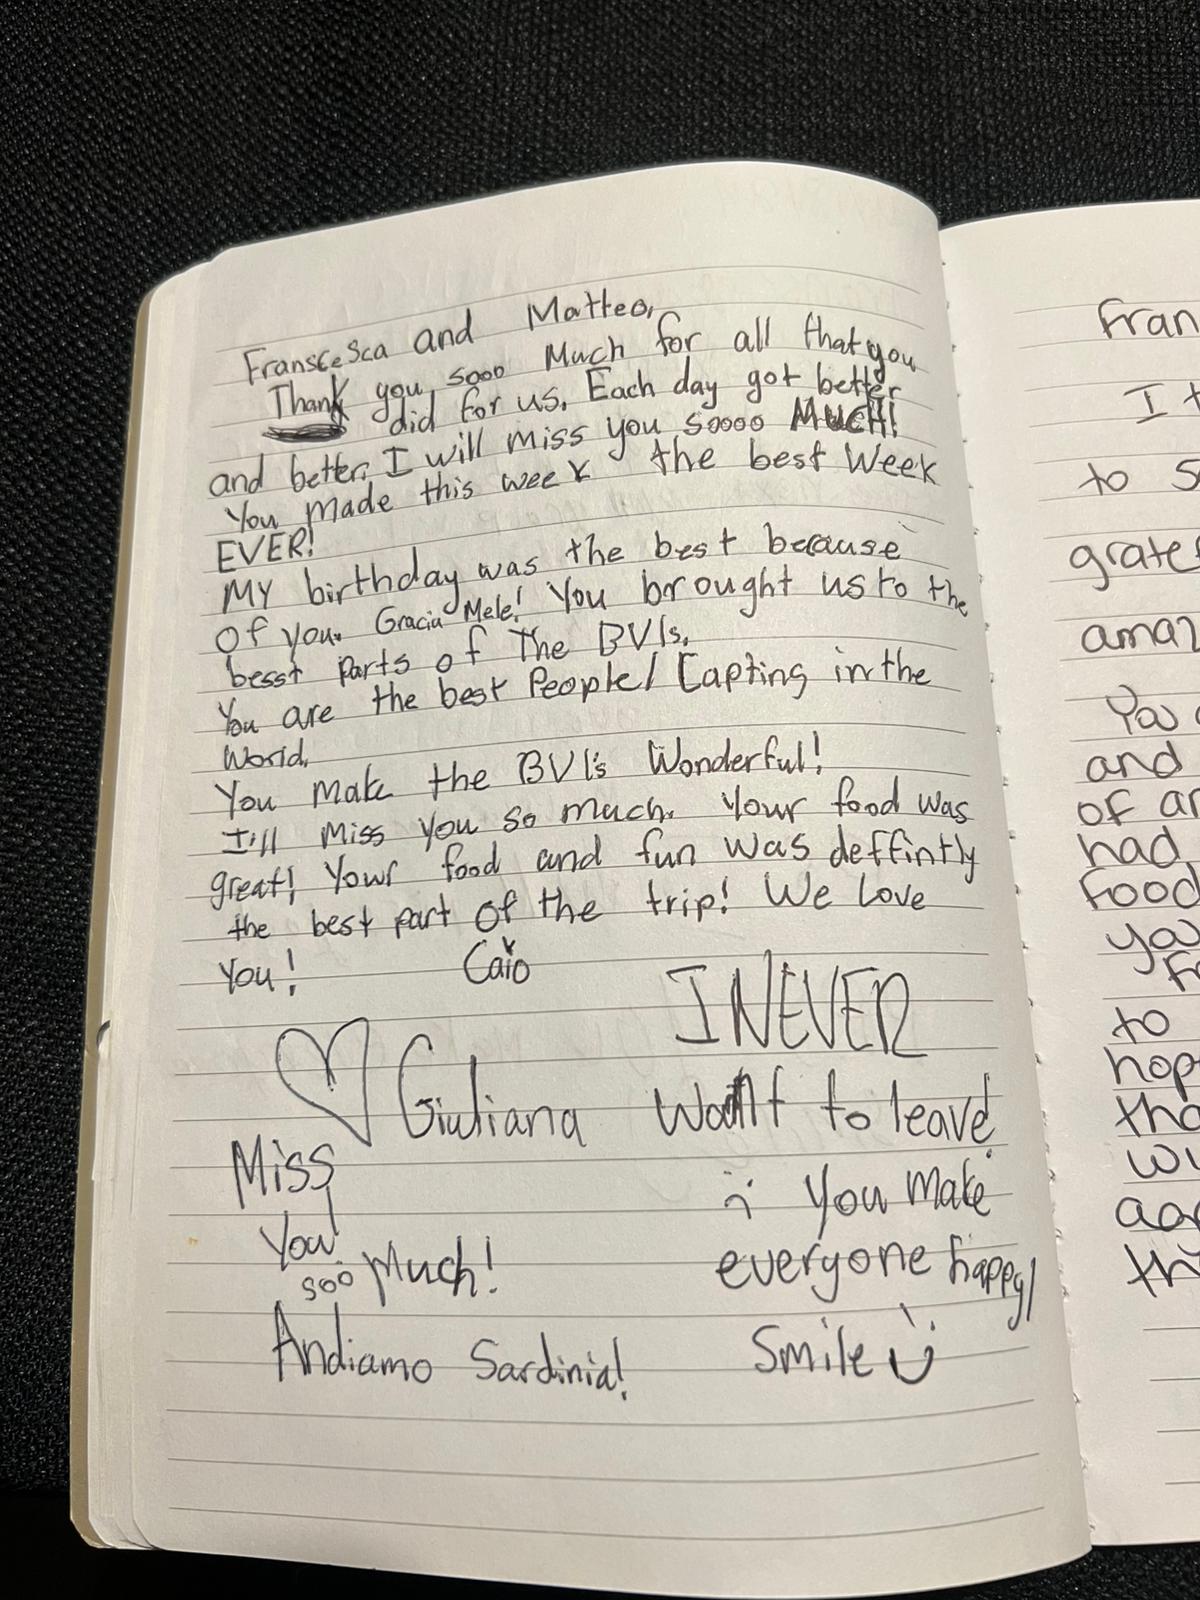 Franscesca and Matteo,
Thank you sooo Much for all that you
did for us. Each day got better
and better. I will miss you soooo MUCH!
You made this week the best Week
EVER!
My birthday was the best because
of you. Gracia Mele! You brought us to the
besst parts of The BVIs.
You are the best People/ Capting in the
World.
You make the BVI's Wonderful!
I'll Miss you so much. Your food was
great! Your food and fun was deffintly
the best part of the trip! We Love
You! Caio
Giuliana
Miss
You!
soo Much!
Andiamo Sardinia!
I NEVER
Want to leave
:( You make
everyone happy!
Smile :)
Fran
I t
to s
grate
amaz
You
and
of ar
had
Food
you
Fr
to
hop
tha
wi
aga
th